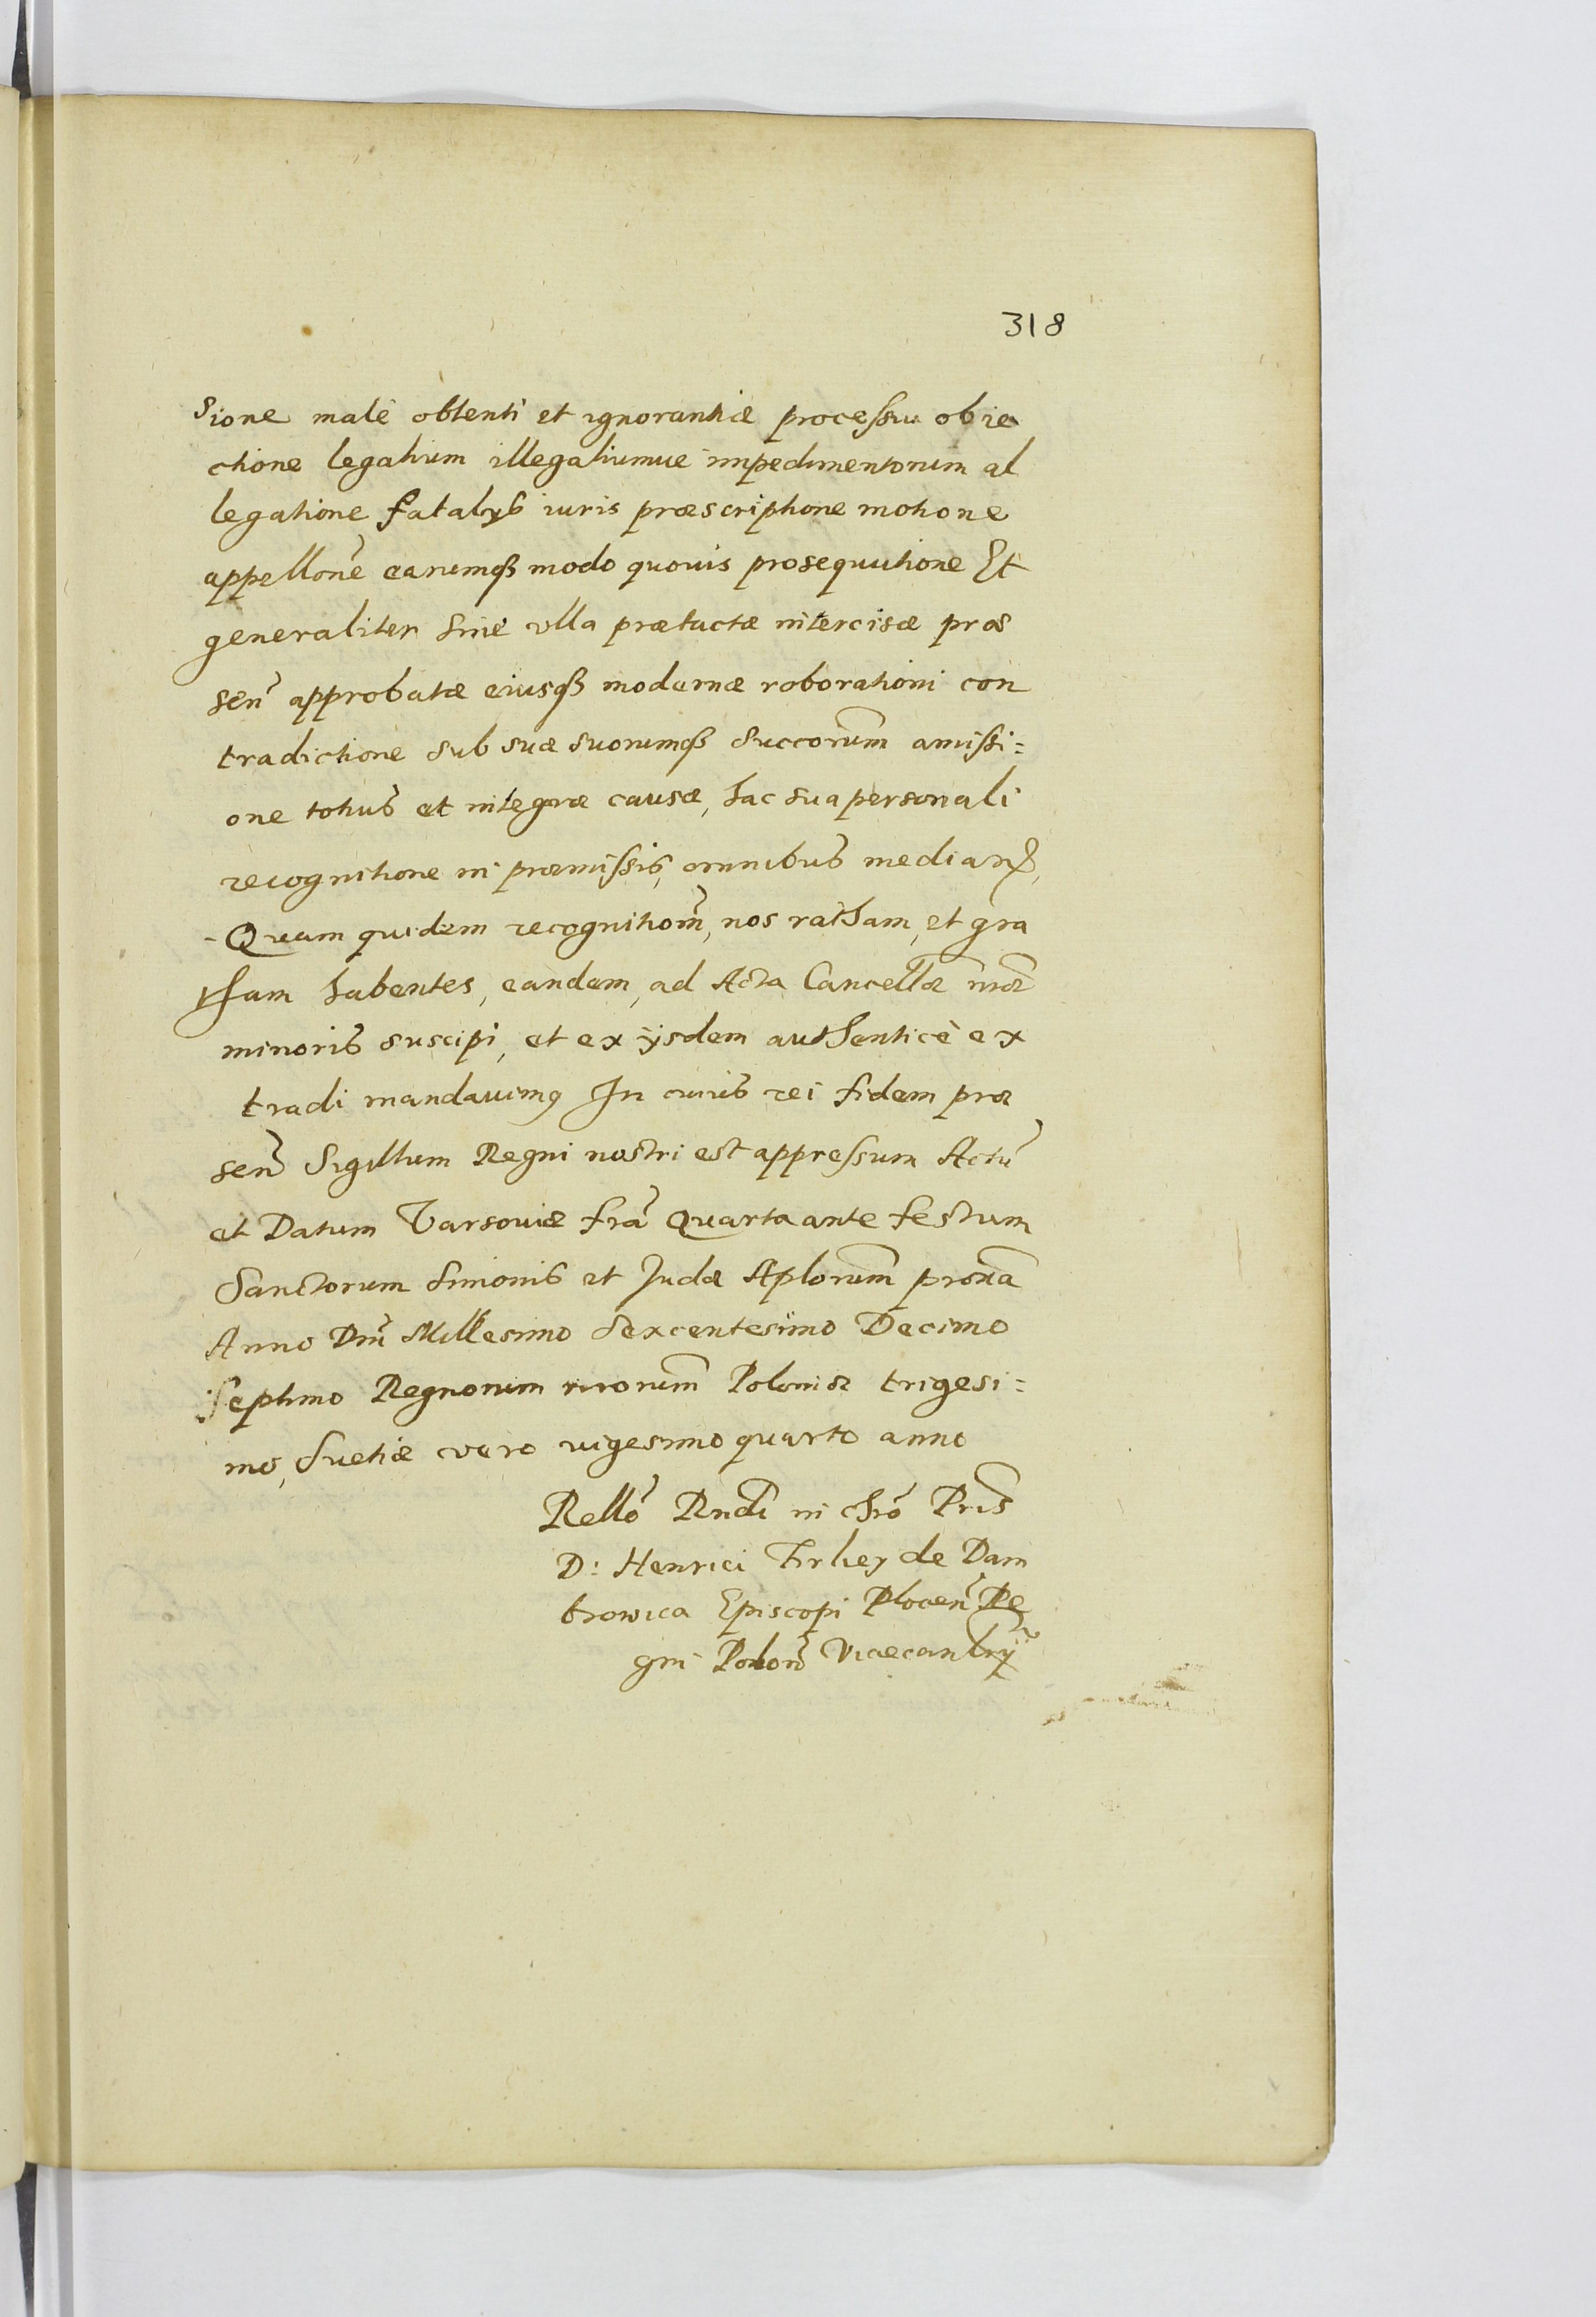 318
sione malè obtenti et ignorantiæ processu obie
ctione legalium illegaliumue impedimentorum al
legatione fatalys iuris præscriptione motione
appellone earumq3 modo quouis prosequutione Et
generaliter sine ulla prætactæ intercisæ præ
sen approbatæ eiusq3 modernæ roborationi con
tradictione sub suæ suorumq3 succorum amissi=
one totius et integræ causæ, hac sua personali
recognitione in præmissis, omnibus median,
Quam quidem recognitiom, nos ratham, et gra
tham habentes, eandem, ad Acta Cancellæ nræ
minoris suscipi, et ex ijsdem authenticè ex
tradi mandauimq In cuius rei fidem præ
sen Sigillum Regni nostri est appressum Actu
et Datum Varsouiæ fra Quarta ante festum
Sanctorum Simonis et Judæ Aplorum proxa
Anno Dni Millesimo Sexcentesimo Decimo
septimo Regnorum nrorum Poloniæ trigesi=
mo, Suetiæ vero vigesimo quarto anno
Rello Rndi in chro Pris
D: Henrici Firley de Dam
browica Episcopi Plocen Re
gni Polon Vicecanlrij